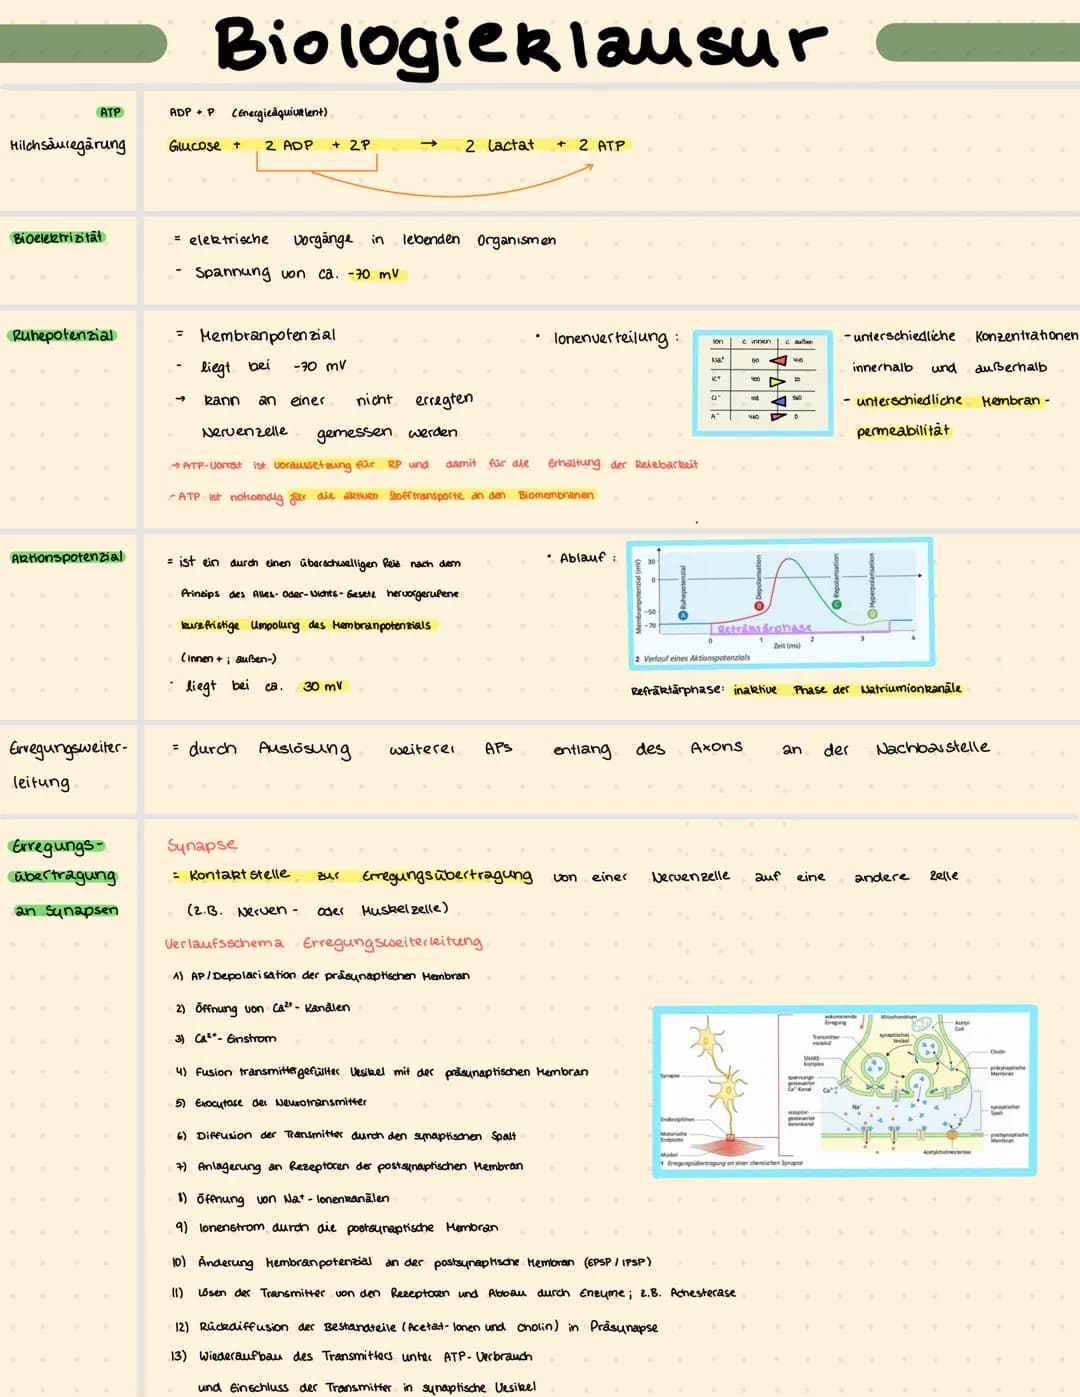 Biologieklausur
ATP
ADP + P (Energieäquivalent)
Milchsäuregärung
Glucose + 2 ADP + 2P → 2 Lactat + 2 ATP
Bioelektrizität
= elektrische Vorgänge in lebenden Organismen
- Spannung von ca. -70 mV
Ruhepotenzial
= Membranpotenzial
- liegt bei -70 mV
→ kann an einer nicht erregten
Nervenzelle gemessen werden
• Ionenverteilung :
Ion c innen c außen
Na⁺ 50 440
K⁺ 400 20
Cl⁻ 108 560
A⁻ 460 0
- unterschiedliche Konzentrationen
innerhalb und außerhalb
- unterschiedliche Membran-
permeabilität
→ ATP-Vorrat ist Voraussetzung für RP und damit für die Erhaltung der Reizbarkeit
- ATP ist notwendig für die aktiven Stofftransporte an den Biomembranen
Aktionspotenzial
= ist ein durch einen überschwelligen Reiz nach dem
Prinzips des Alles-Oder-Nichts-Gesetz hervorgerufene
kurzfristige Umpolung des Membranpotenzials
(Innen + ; außen-)
• liegt bei ca. 30 mV
• Ablauf :
Membranpotenzial (mV)
30
0
-50
-70
A Ruhepotenzial
B Depolarisation
C Repolarisation
D Hyperpolarisation
Refräktärphase
0 1 2 3 4
Zeit (ms)
2 Verlauf eines Aktionspotenzials
Refräktärphase: inaktive Phase der Natriumionkanäle
Erregungsweiter-
leitung
= durch Auslösung weiterer APs entlang des Axons an der Nachbarstelle
Erregungs-
übertragung
an Synapsen
Synapse
= Kontaktstelle zur Erregungsübertragung von einer Nervenzelle auf eine andere Zelle
(z.B. Nerven- oder Muskelzelle)
Verlaufsschema Erregungsweiterleitung
1) AP/Depolarisation der präsynaptischen Membran
2) Öffnung von Ca²⁺- Kanälen
3) Ca²⁺- Einstrom
4) Fusion transmittergefüllter Vesikel mit der präsynaptischen Membran
5) Exocytose der Neurotransmitter
6) Diffusion der Transmitter durch den synaptischen Spalt
7) Anlagerung an Rezeptoren der postsynaptischen Membran
8) Öffnung von Na⁺-Ionenkanälen
9) Ionenstrom durch die postsynaptische Membran
10) Änderung Membranpotenzial an der postsynaptische Membran (EPSP / IPSP)
11) Lösen der Transmitter von den Rezeptoren und Abbau durch Enzyme; z.B. Achesterase
12) Rückdiffusion der Bestandteile (Acetat-Ionen und Cholin) in Präsynapse
13) Wiederaufbau des Transmitters unter ATP-Verbrauch
und Einschluss der Transmitter in synaptische Vesikel
Synapse
Endknöpfchen
Motorische
Endplatte
Muskel
ankommende
Erregung
Mitochondrium
Acetyl-
CoA
Transmitter-
molekül
synaptisches
Vesikel
Cholin
SNARE-
Komplex
präsynaptische
Membran
spannungs-
gesteuerter
Ca²⁺-Kanal
Ca²⁺
Na⁺
synaptischer
Spalt
rezeptor-
gesteuerter
Ionenkanal
postsynaptische
Membran
Acetylcholinesterase
1 Erregungsübertragung an einer chemischen Synapse